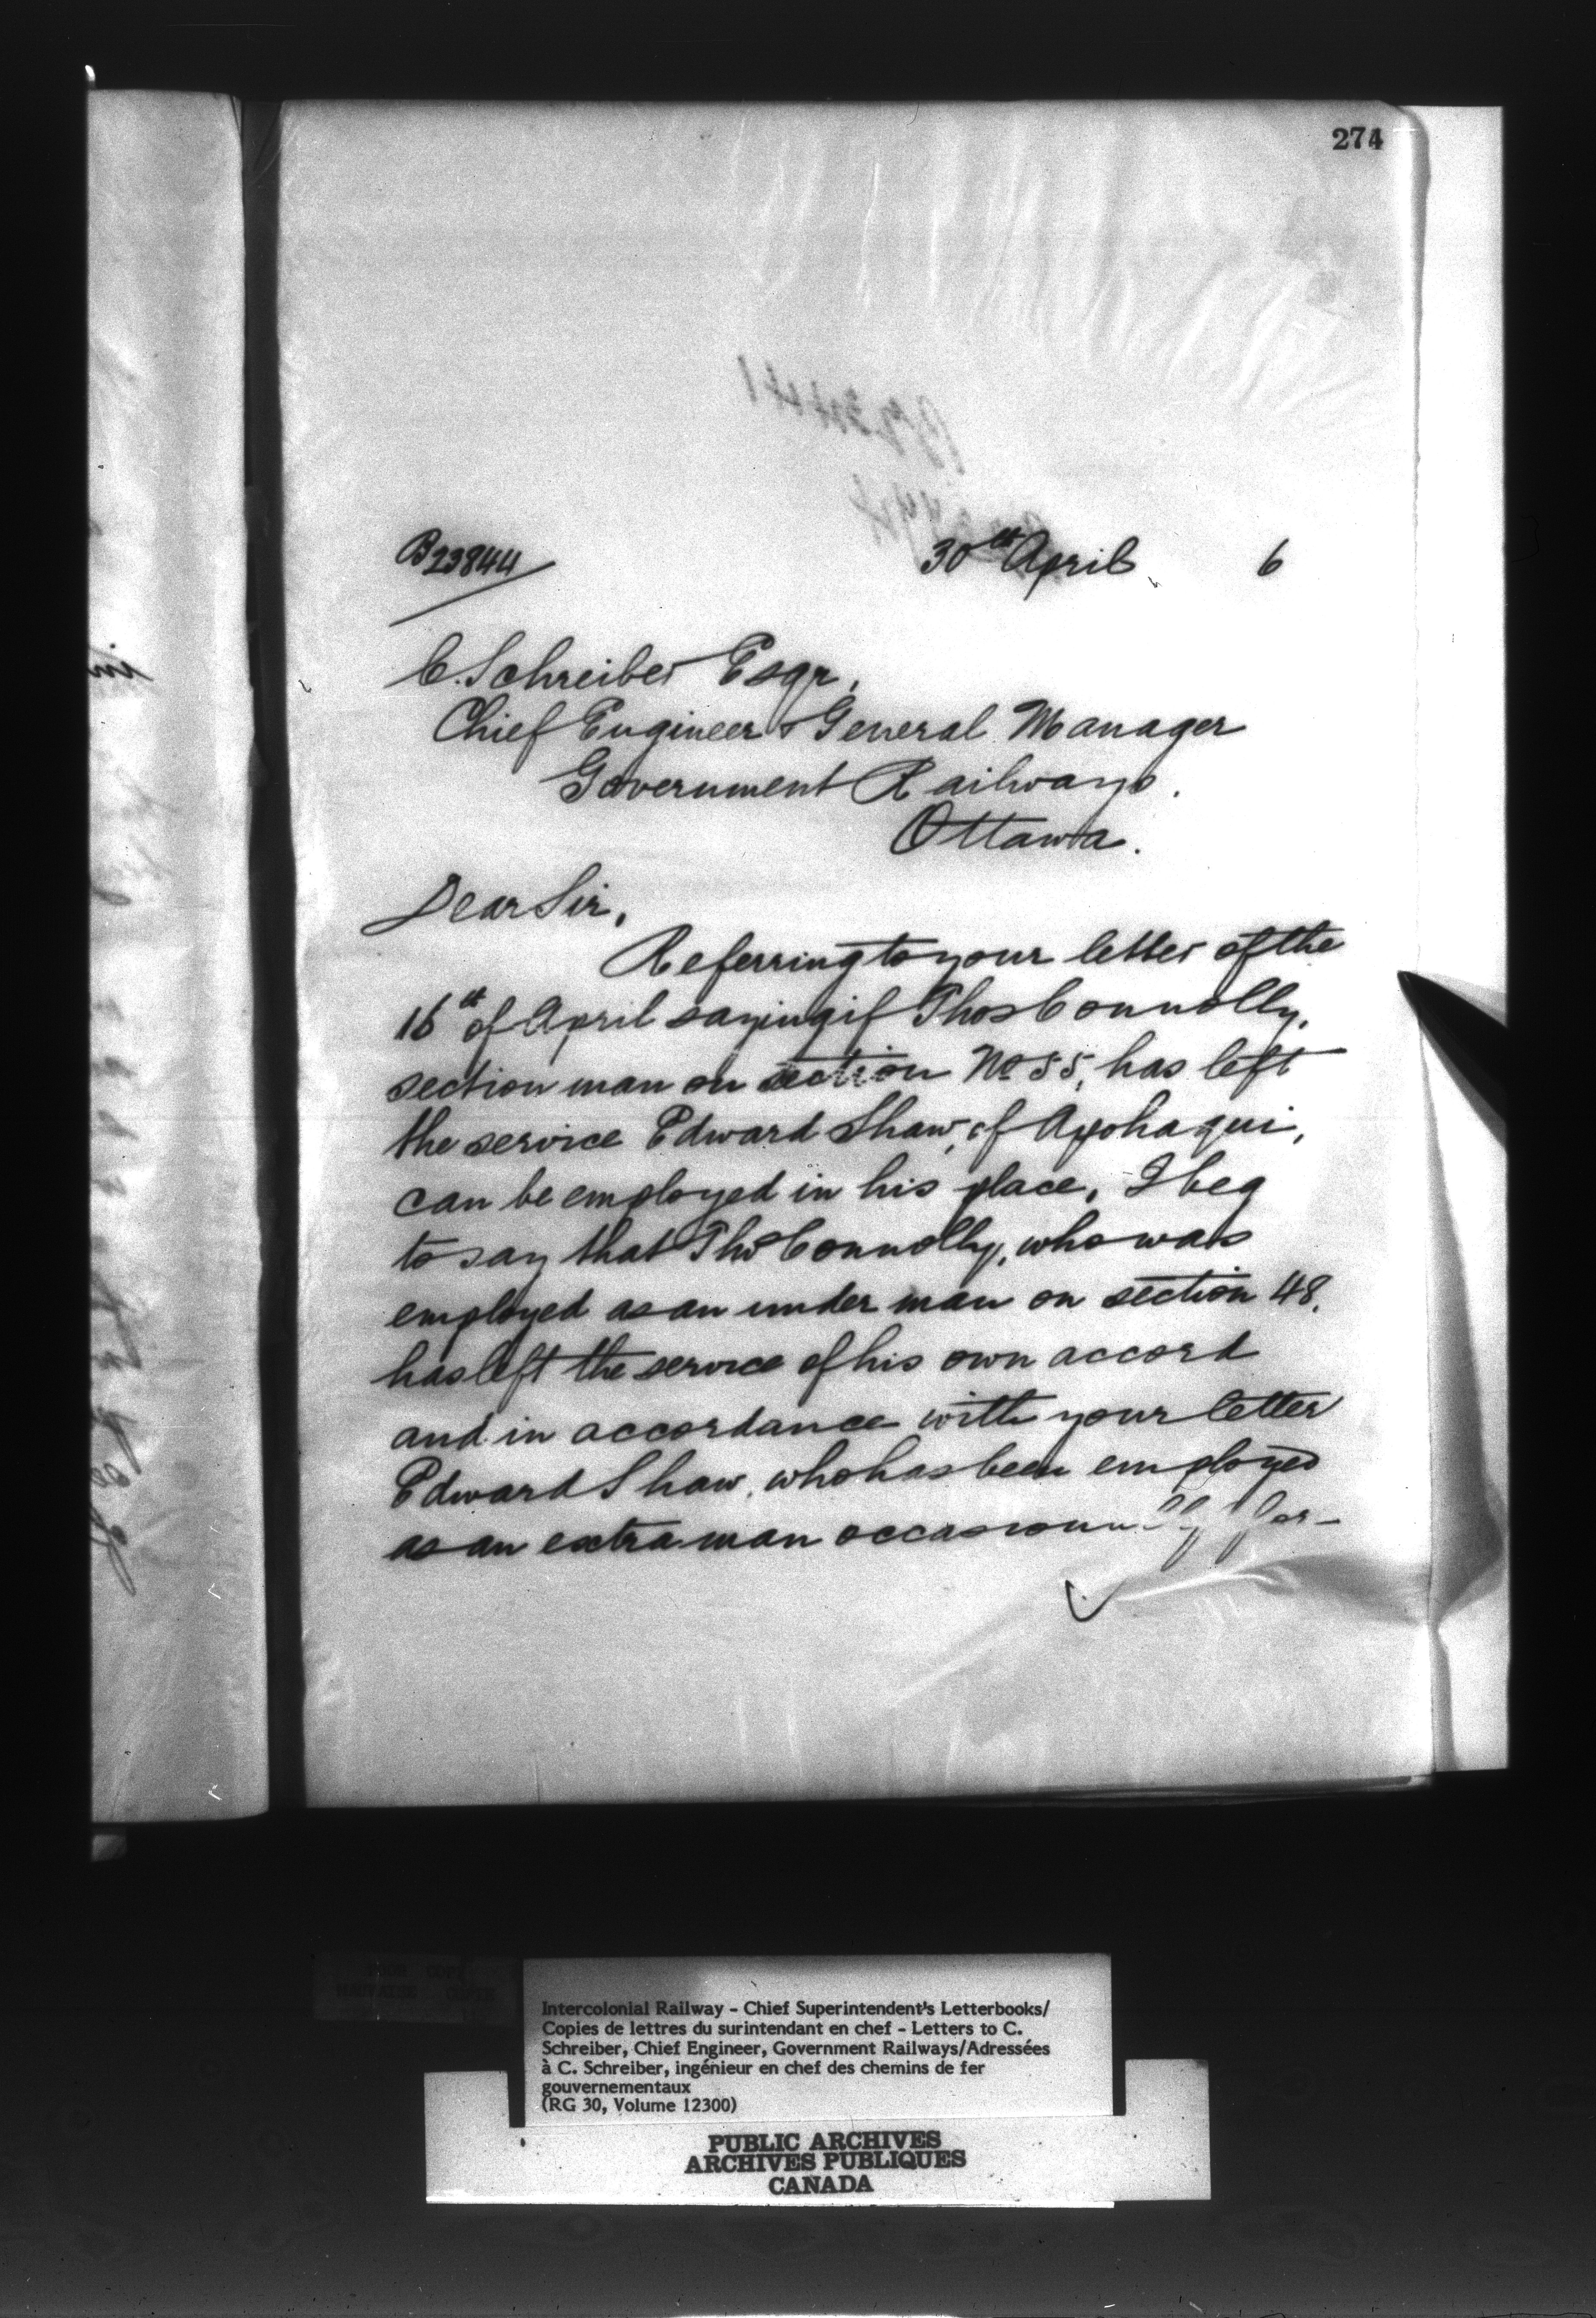 274
B23844
30th April 6
C. Schreiber Esqr,
Chief Engineer & General Manager
Government Railways.
Ottawa.
Dear Sir,
Referring to your letter of the
16th of April saying if Thos Connolly,
section man on section No 55, has left
the service Edward Shaw, of Apohaqui,
can be employed in his place, I beg
to say that Thos Connolly, who was
employed as an under man on section 48,
has left the service of his own accord
and in accordance with your letter
Edward Shaw, who has been employed
as an extra man occasionally for-
Intercolonial Railway - Chief Superintendent's Letterbooks/
Copies de lettres du surintendant en chef - Letters to C.
Schreiber, Chief Engineer, Government Railways/Adressées
à C. Schreiber, ingénieur en chef des chemins de fer
gouvernementaux
(RG 30, Volume 12300)
PUBLIC ARCHIVES
ARCHIVES PUBLIQUES
CANADA